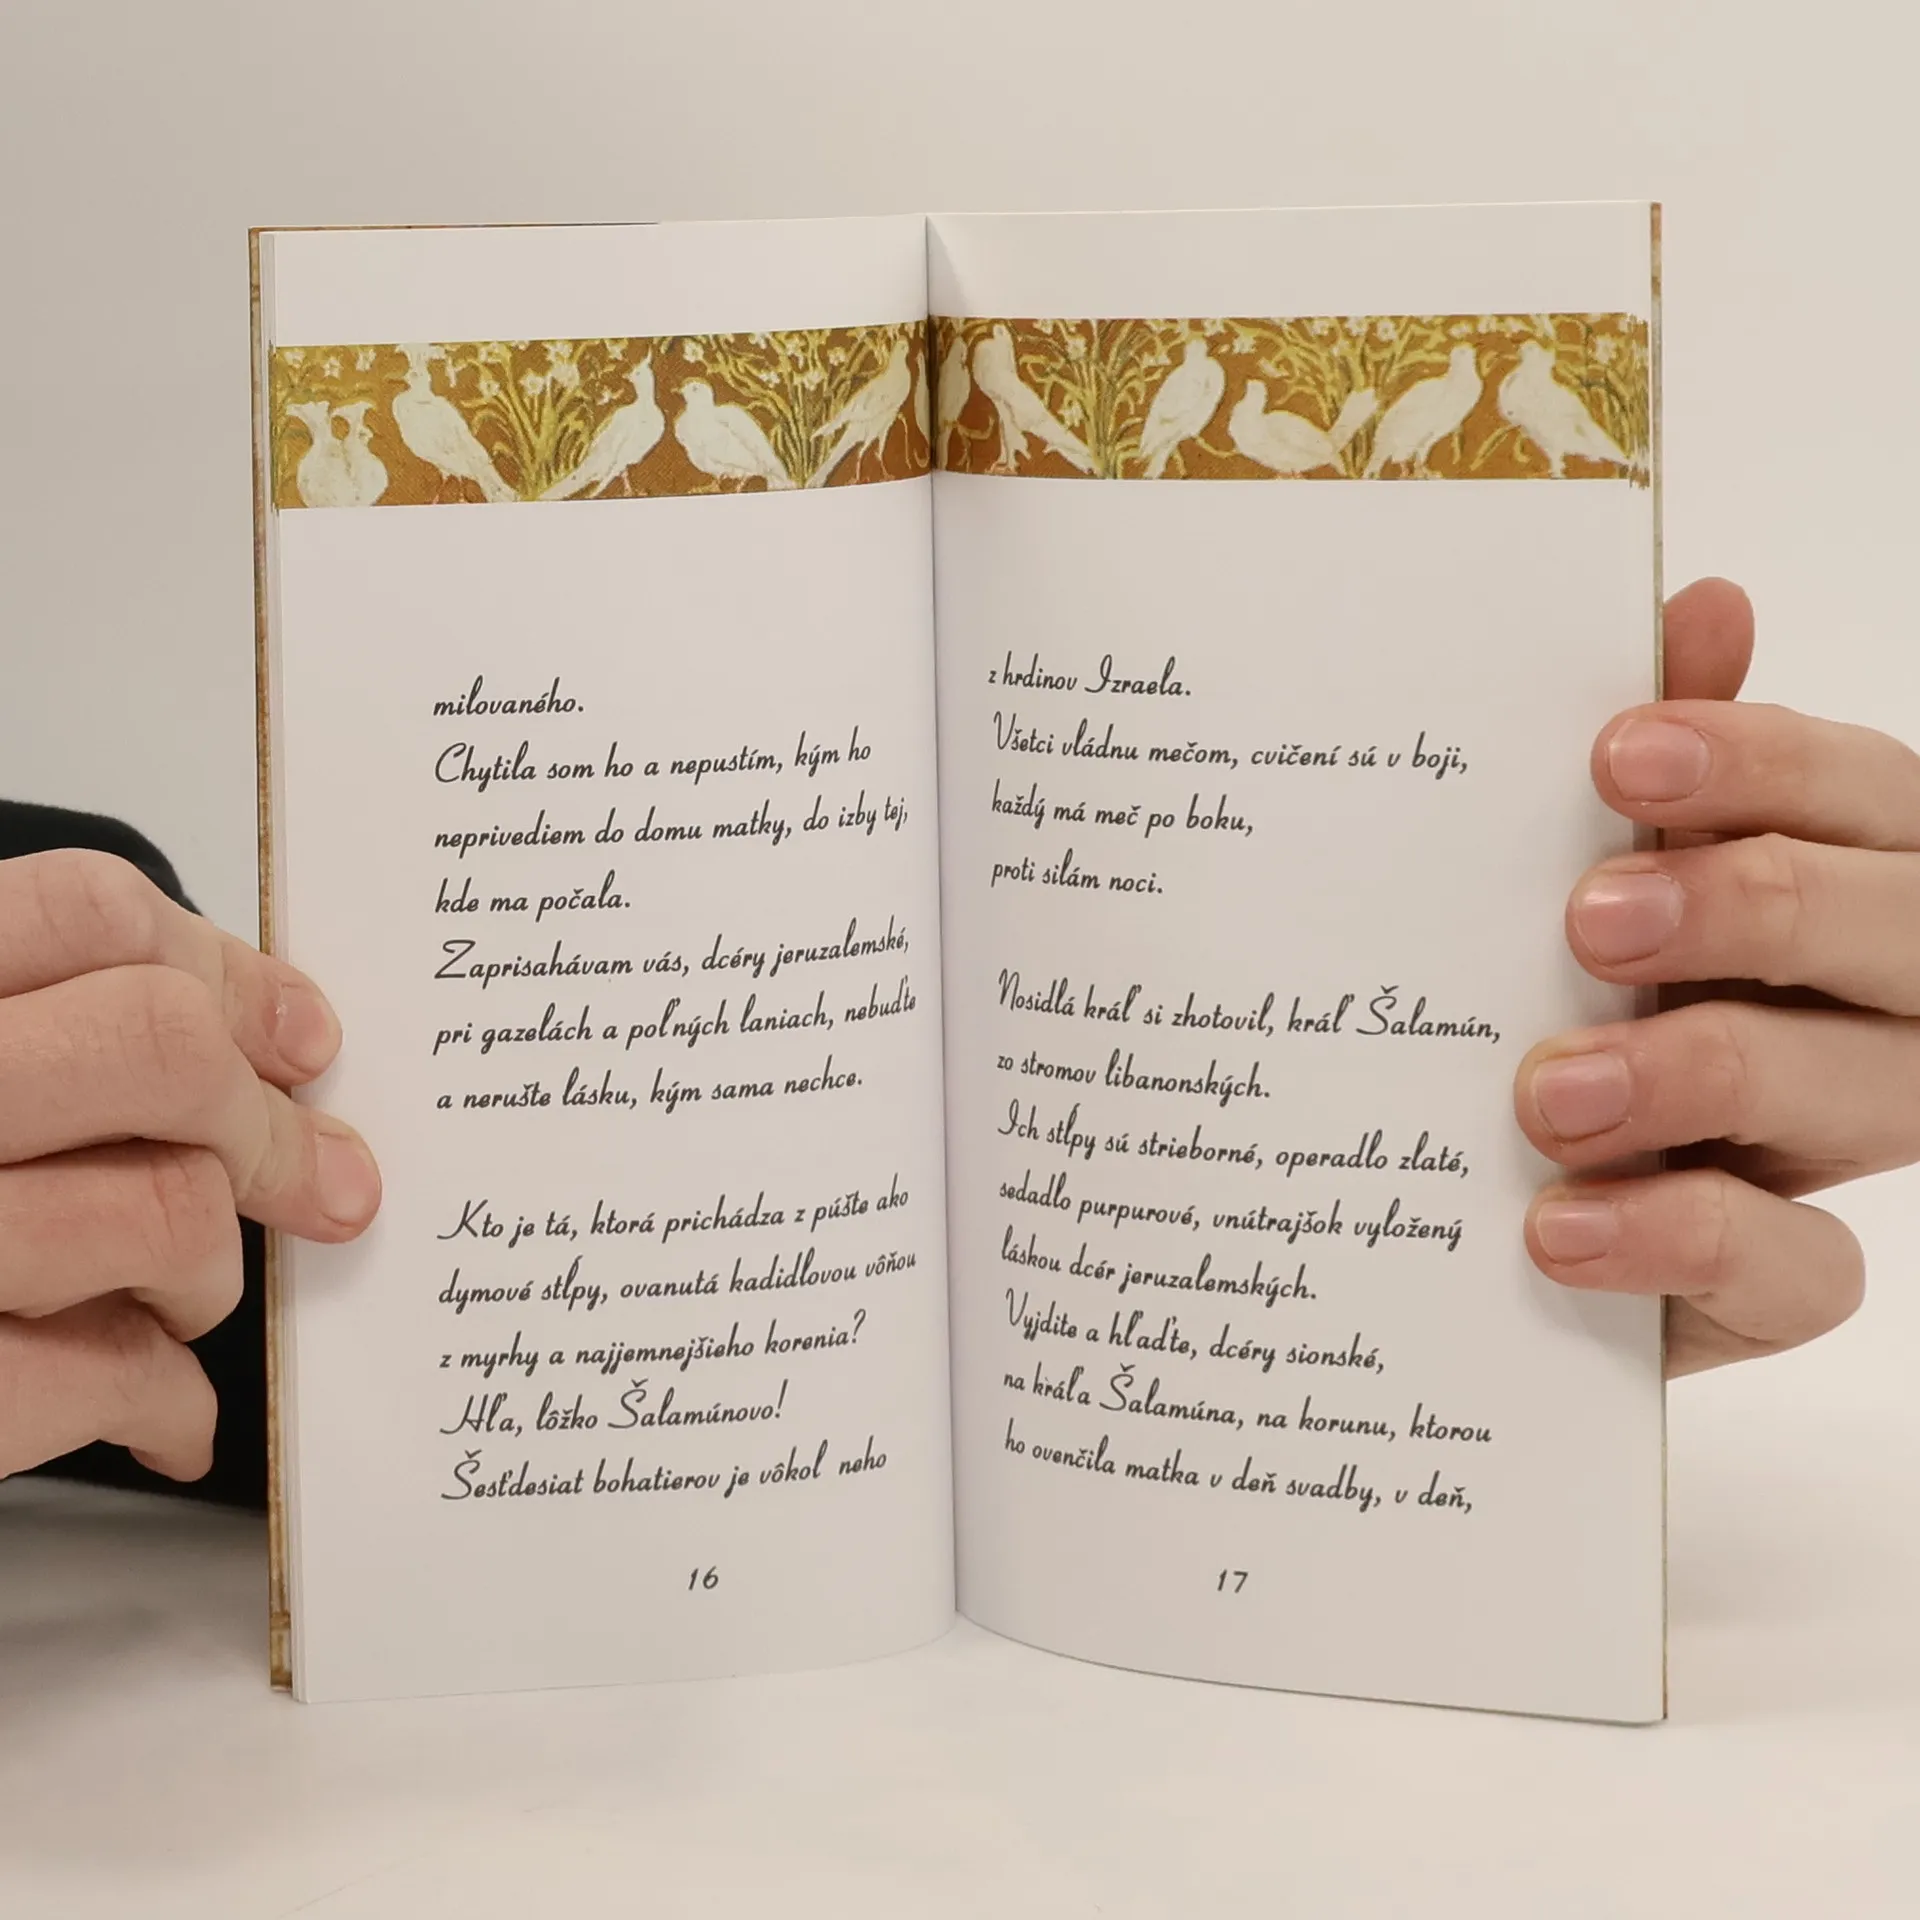 milovaného.
Chytila som ho a nepustím, kým ho
neprivediem do domu matky, do izby tej,
kde ma počala.
Zaprisahávam vás, dcéry jeruzalemské,
pri gazelách a poľných laniach, nebuďte
a nerušte lásku, kým sama nechce.
Kto je tá, ktorá prichádza z púšte ako
dymové stĺpy, ovanutá kadidlovou vôňou
z myrhy a najjemnejšieho korenia?
Hľa, lôžko Šalamúnovo!
Šesťdesiat bohatierov je vôkol neho
16
z hrdinov Izraela.
Všetci vládnu mečom, cvičení sú v boji,
každý má meč po boku,
proti silám noci.
Nosidlá kráľ si zhotovil, kráľ Šalamún,
zo stromov libanonských.
Ich stĺpy sú strieborné, operadlo zlaté,
sedadlo purpurové, vnútrajšok vyložený
láskou dcér jeruzalemských.
Vyjdite a hľaďte, dcéry sionské,
na kráľa Šalamúna, na korunu, ktorou
ho ovenčila matka v deň svadby, v deň,
17